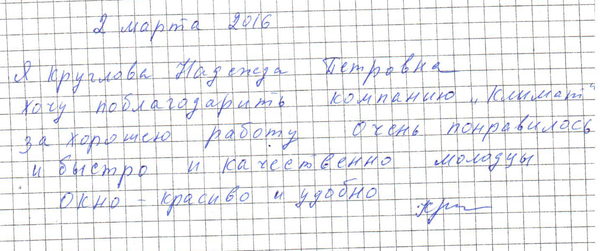 2 марта 2016
Я Круглова Надежда Петровна
хочу поблагодарить компанию „Климат“
за хорошею работу очень понравилось
и быстро и качественно моладцы
Окно - красиво и удобно